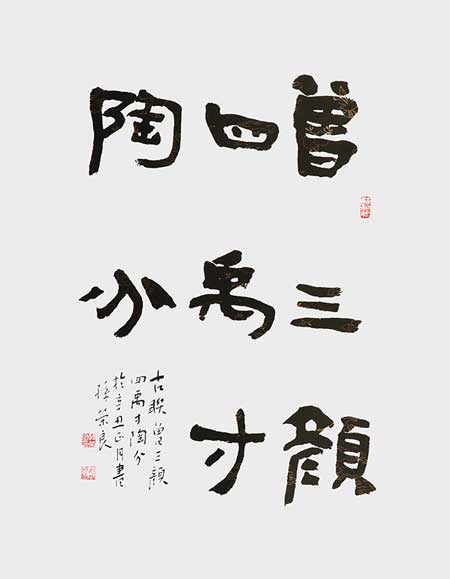 曾三顏
四禹寸
陶分
古联曾三顏
四禹寸陶分
於辛丑正月書
孫荣良